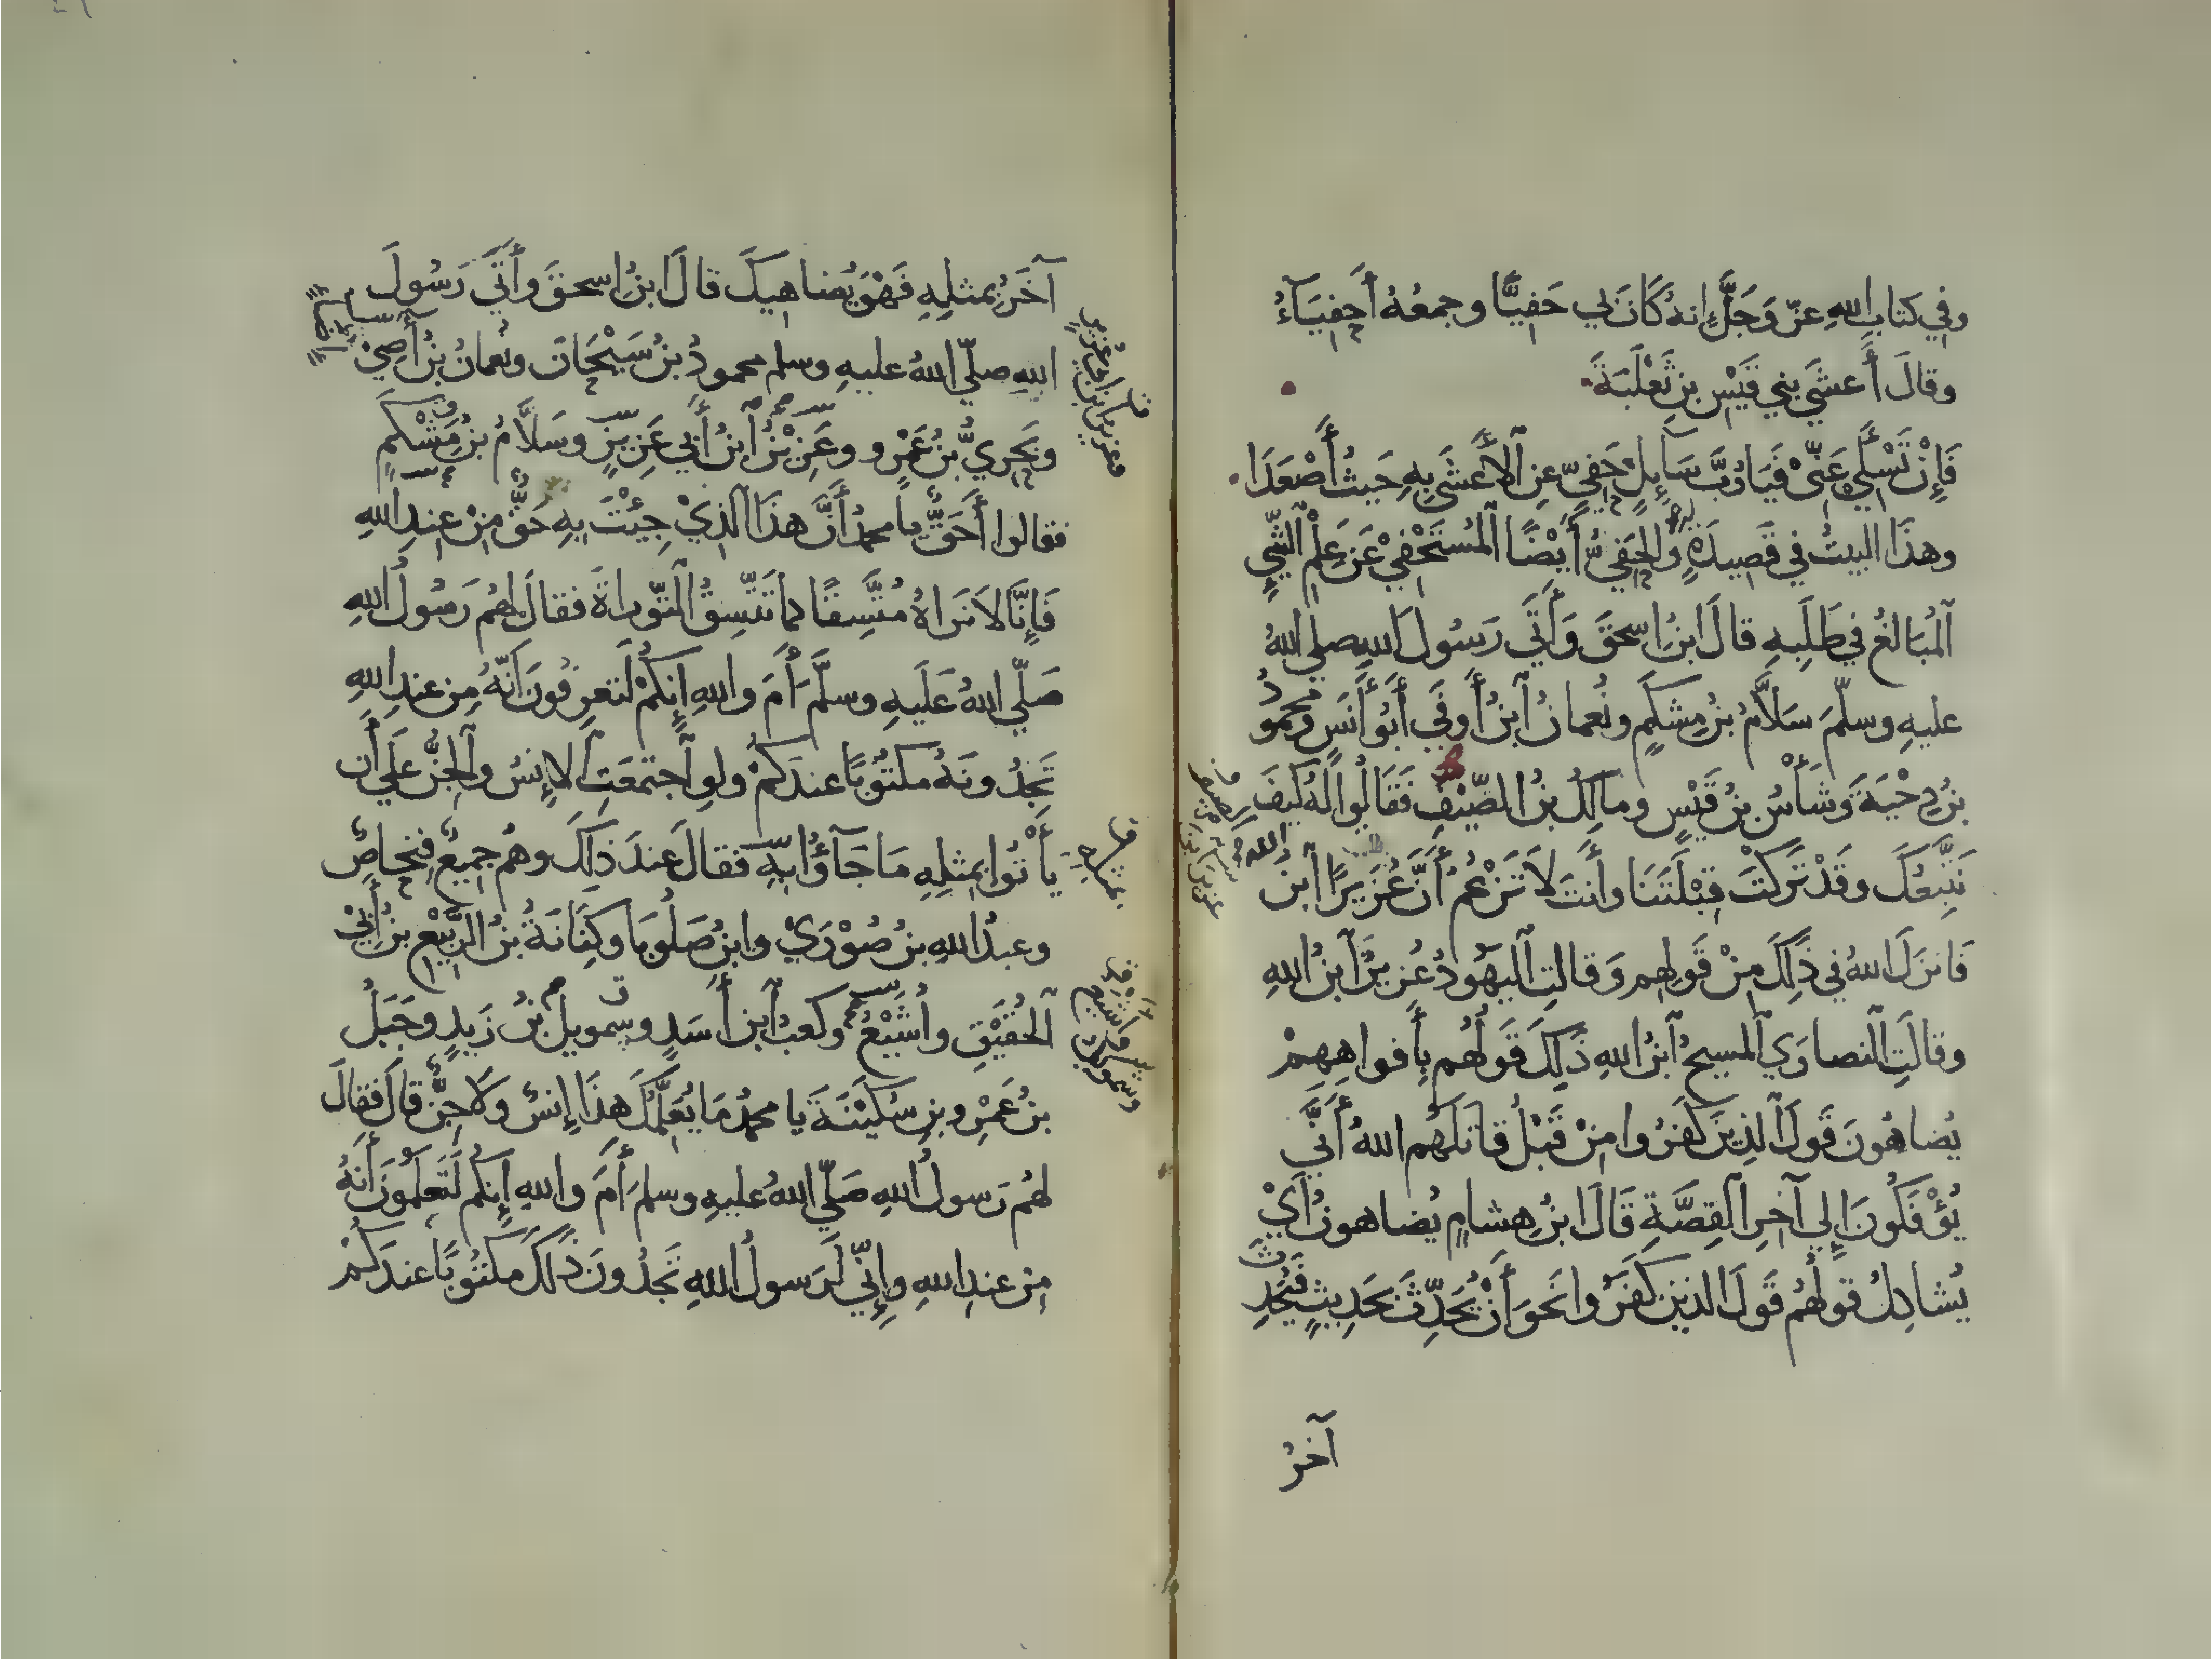 وفي كتابِ اللهِ عزّ وَجَلَّ إنهُ كَانَ بي حَفِيًّا وجمعُهُ أَحفِيَآءُ
وقالَ أَعشَى بني قَيْسِ بنِ ثَعْلَبَةَ
فَإِنْ تَسْئَلِي عَنّي فَيَا رُبَّ سَآئِلٍ حَفِيٍّ عَنِ ٱلأَعشَى بِهِ حَيثُ أَصْعَدَا
وهذَا البيتُ في قَصِيدَةٍ والحَفِيُّ أَيْضًا ٱلمُسْتَحْفِيْ عَنْ عِلْمِ ٱلشّيِ
ٱلمُبَالِغُ في طَلَبِهِ قالَ ابنُ اسحقَ وَأَتَي رَسُولَ اللهِ صلي اللهُ
عليهِ وسلّمَ سَلاَّمُ بنُ مِشكَمٍ ونُعمانُ ٱبنُ أَوفَي أَبُو أَنَسٍ ومحمودُ
بنُ دِحْيَةَ وَشَأْسُ بنُ قَيْسٍ ومالكُ بنُ الصَّيْفِ فَقَالُوا لَهُ كَيفَ
نَتَّبِعُكَ وقَدْ تَرَكْتَ قِبْلَتَنَا وأَنتَ لاَ تَزْعُمُ أَنَّ عُزَيرًا ٱبنُ الله
فَانزلَ اللهُ في ذَلِكَ مِنْ قَولِهِم وَقالتِ ٱليَهُودُ عُزيرٌ ٱبنُ اللهِ
وقالَتِ ٱلنصارَي ٱلمسيحُ ٱبنُ اللهِ ذَلِكَ قَولُهُم بِأَفواهِهِمْ
يُضاهُونَ قَولَ ٱلذينَ كَفَرُوا مِنْ قَبْلُ قاتلَهُم اللهُ أَنَّي
يُؤْفَكُونَ إِلي آخرِ ٱلقِصَّةِ قَالَ ابنُ هِشامٍ يُضاهونَ أَيْ
يُشاكِلُ قولُهُمْ قَولَ الذينَ كفَرُوا نَحوَ أَنْ يُحَدِّثَ بحَدِيثٍ فَيُحَدِّثُ
آخَرُ
آخَرُ بمثلِهِ فَهْوَ يُضاهيكَ قالَ ابنُ اسحقَ وأَتَي رَسُولَ
اللهِ صلّي اللهُ عليهِ وسلم محمودُ بنُ سَيْحَانَ ونُعمانُ بنُ أَضَي
وبَحْرِيُّ بنُ عَمْرو وعَزِيزُ ٱبنُ أَبي عَزِيزٍ وسَلاَّمُ بنُ مِشْكَمٍ
فقالوا أَحَقٌّ يا محمدُ أَنَّ هذَا ٱلذيْ جِئْتَ بِهِ حَقٌّ مِنْ عِندِ اللهِ
فَإِنَّا لاَ نَرَاهُ مُتَّسِقًا كما تَتَّسِقُ ٱلتّوراةَ فقالَ لهُم رَسُولُ اللهِ
صَلّي اللهُ عَلَيهِ وسلَّمَ أَمَ واللهِ إِنكُمْ لَتعرِفُونَ أَنّهُ مِن عندِ اللهِ
تَجِدُونَهُ مكتُوبًا عندَكُمْ ولوِ ٱجتمعَتِ ٱلاِنسُ وٱلجِنُّ عَلَي أَن
يَأْتُوا بمثلِهِ مَا جَآؤُا بهِ فقالَ عندَ ذَلكَ وهُم جميعٌ فِنحاصُ
وعبدُ اللهِ بنُ صُوْرَي وابنُ صَلُوبا وكِنَانَةُ بنُ الرَّبِيْعِ بنِ أَبي
ٱلحُقَيْقِ وأُشَيْعُ وكعبُ ٱبنُ أَسَدٍ وسِمويل بنُ زَيدٍ وجَبَلُ
بنُ عَمْرِو بنِ سُكَيْنَةَ يا محمدُ مَا يُعَلِّمُكَ هذَا إِنسٌ وَلاَ جِنٌّ قالَ فقالَ
لهُم رَسولُ اللهِ صَلّي اللهُ عليهِ وسلمَ أَمَ واللهِ إِنكم لَتعلَمُونَ أَنهُ
مِن عندِ اللهِ وإِنّي لَرَسولُ اللهِ تجدُونَ ذَلكَ مَكتُوبًا عندَكُمْ